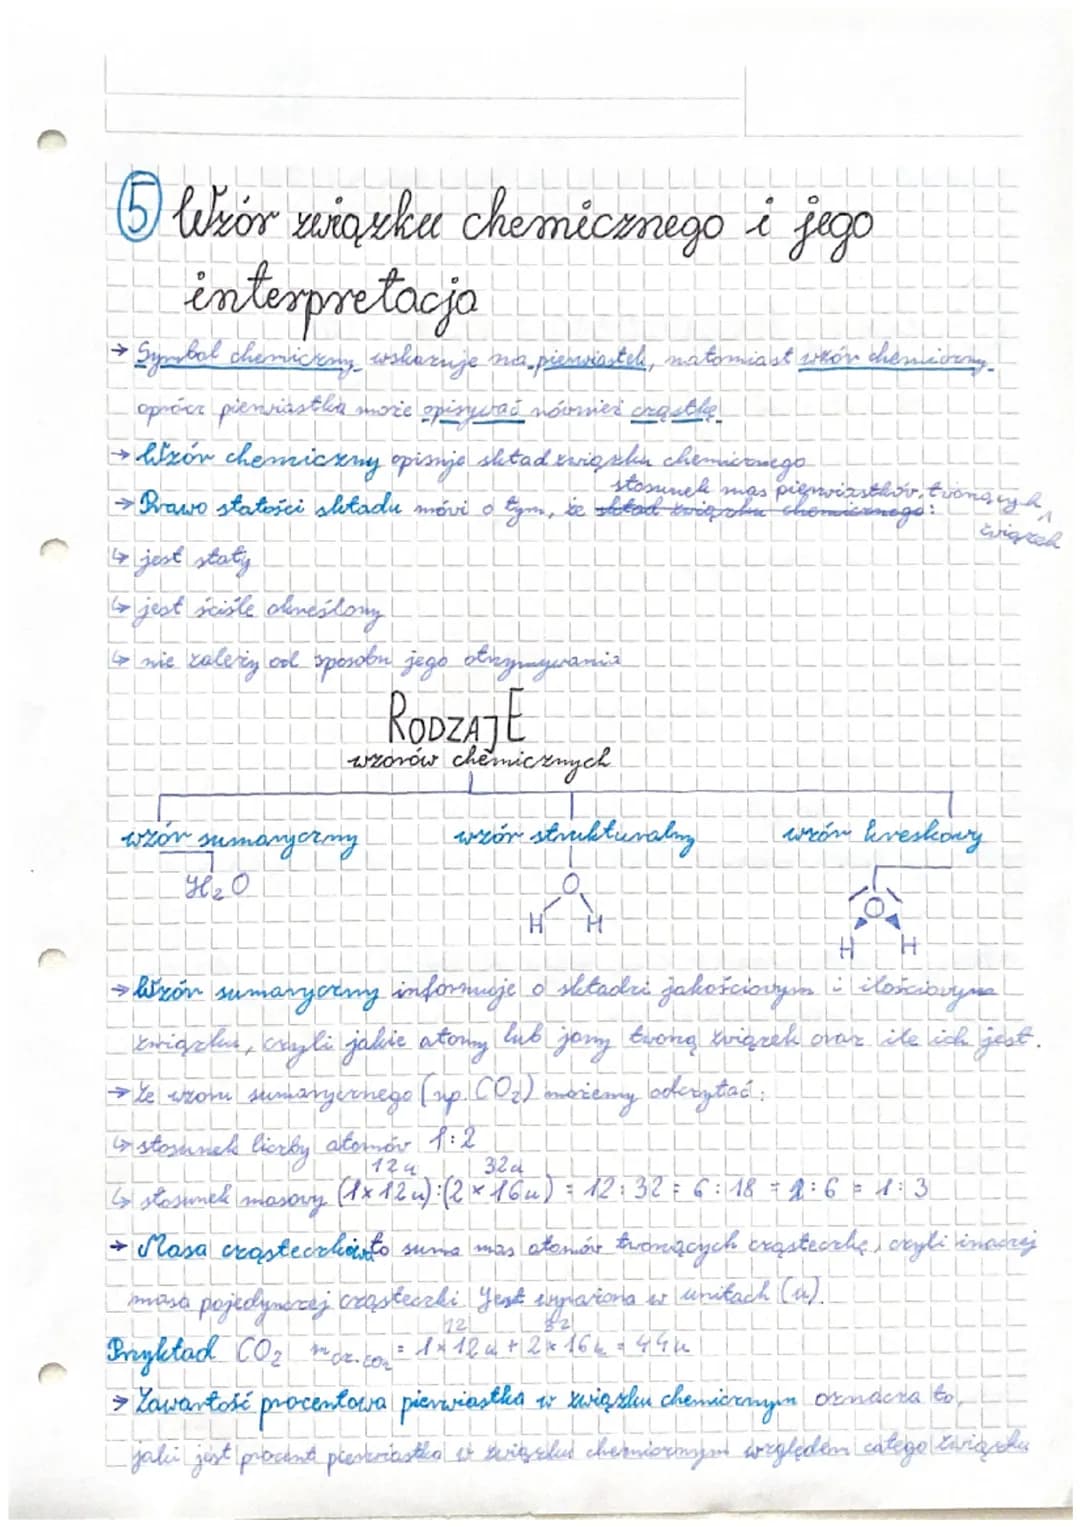 5 Wzór związku chemicznego i jego
interpretacja
→ Symbol chemiczny wskazuje na pierwiastek, natomiast wzór chemiczny
oprócz pierwiastka może opisywać również cząstkę
→ Wzór chemiczny opisuje skład związku chemicznego
stosunek mas pierwiastków, tworzących
→ Prawo stałości składu mówi o tym, że skład związku chemicznego:
związek
↳ jest stały
↳ jest ściśle określony
↳ nie zależy od sposobu jego otrzymywania
RODZAJE
wzorów chemicznych
wzór sumaryczny wzór strukturalny wzór kreskowy
H₂O O O
H H H H
→ Wzór sumaryczny informuje o składzie jakościowym i ilościowym
związku, czyli jakie atomy lub jony tworzą związek oraz ile ich jest.
→ Ze wzoru sumarycznego (np. CO₂) możemy odczytać:
↳ stosunek liczby atomów 1:2
12u 32u
↳ stosunek masowy (1×12u):(2×16u) = 12:32 = 6:18 = 2:6 = 1:3
→ Masa cząsteczkowa to suma mas atomów tworzących cząsteczkę, czyli inaczej
masa pojedynczej cząsteczki. Jest wyrażona w unitach (u).
12 32
Przykład CO₂ m cz. CO₂ = 1×12u + 2×16u = 44u
→ Zawartość procentowa pierwiastka w związku chemicznym oznacza to,
jaki jest procent pierwiastka w związku chemicznym względem całego związku